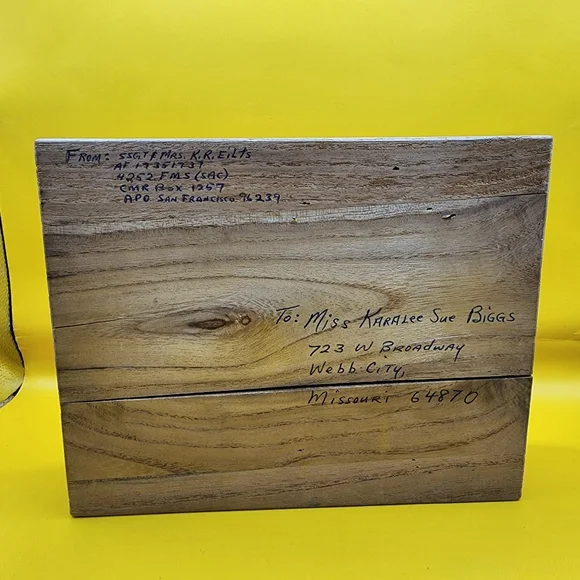 FROM: SSGT & MRS. R.R. EILTS
AF 17351737
4252 FMS (SAC)
CMR BOX 1257
APO SAN FRANCISCO 96239
TO: MISS KARALEE SUE BIGGS
723 W BROADWAY
WEBB CITY,
MISSOURI 64870